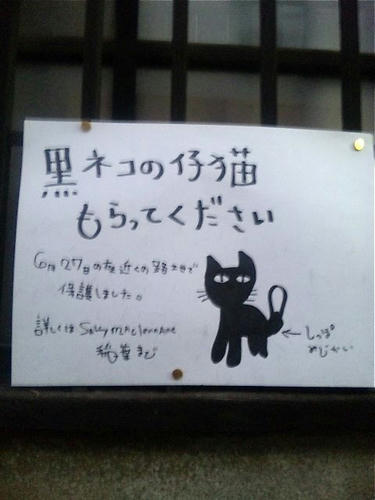 黒ネコの仔猫
もらってください
6月27日の夜近くの路上で
保護しました。
詳しくは Sally
稲葉まで
←しっぽ
みじかい